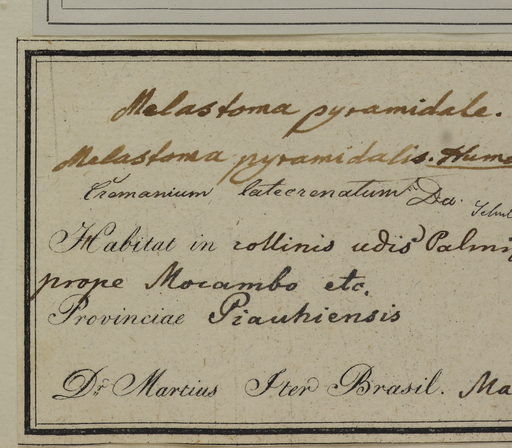 Melastoma pyramidale.
Melastoma pyramidalis. Hum
Cremanium latecrenatum Dc.
Habitat in collinis udis
prope Mocambo etc.
Provinciae Piauhiensis
Dr. Martius Iter Brasil. Ma